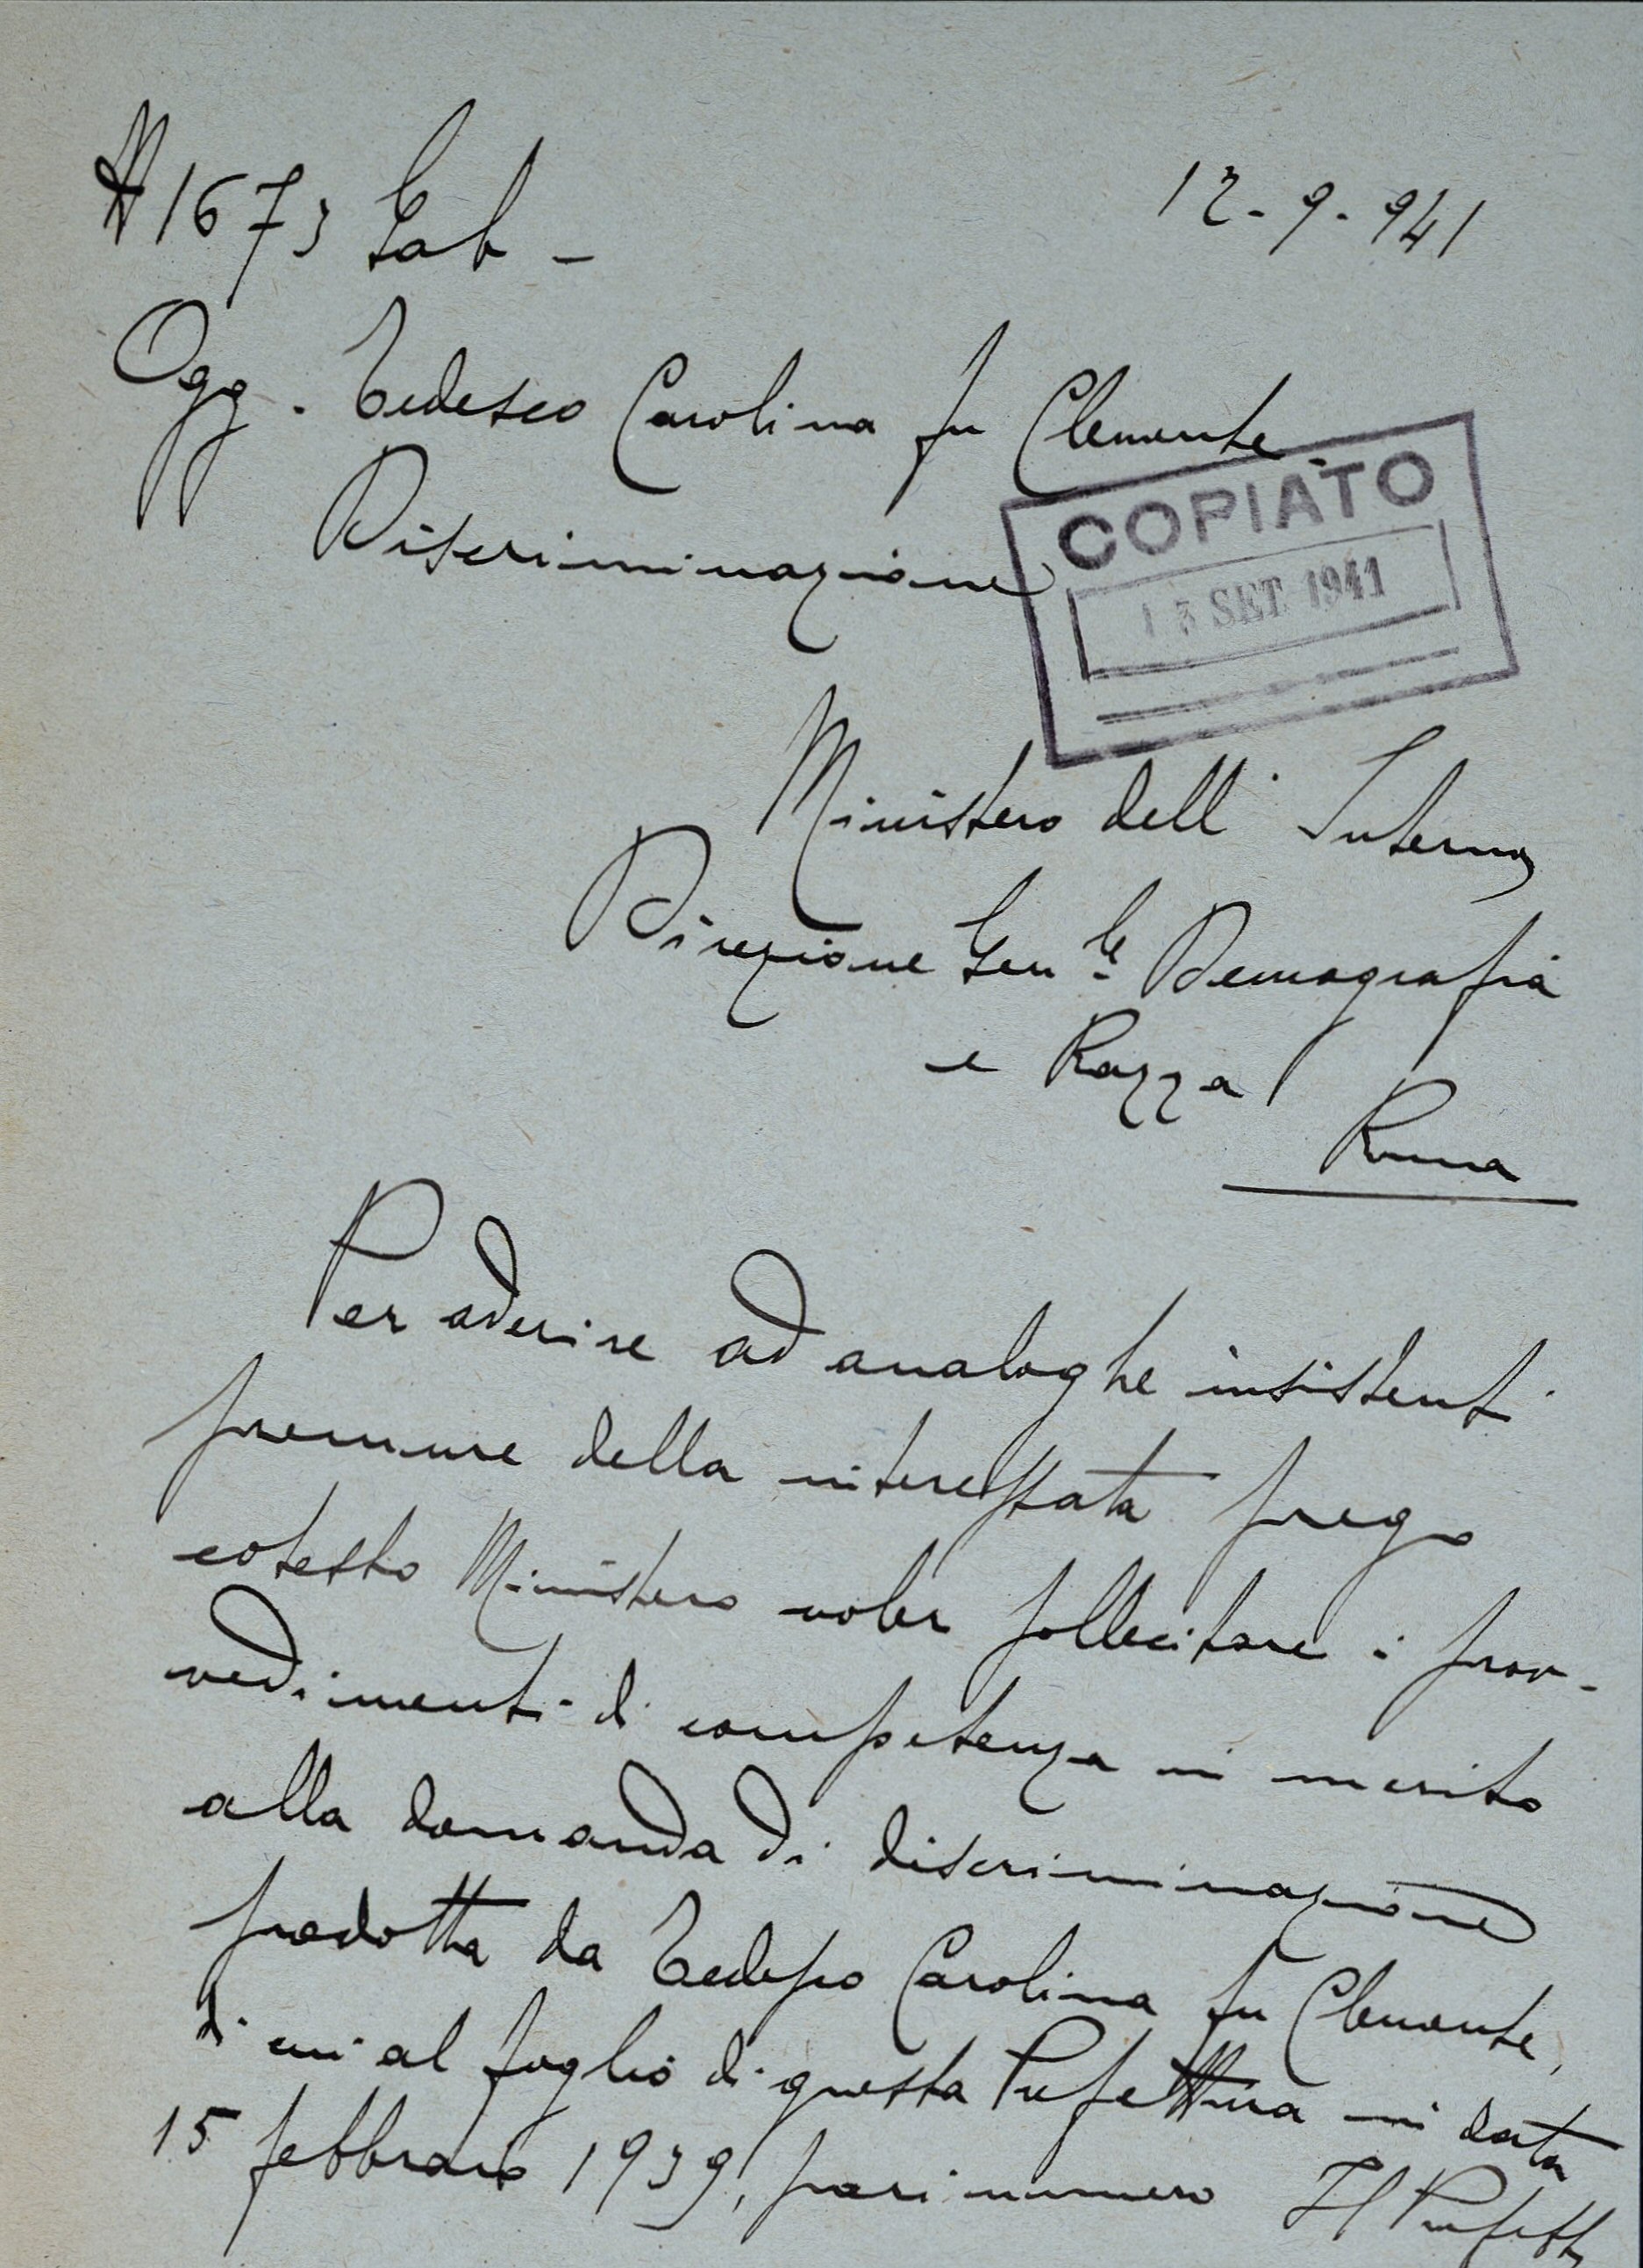 N 1673 Gab - 12-9-941
Ogg. Tedesco Carolina fu Clemente -
Discriminazione
COPIATO
13 SET 1941
Ministero dell'Interno
Direzione Gen le Demografia
e Razza
Roma
Per aderire ad analoghe insistenti
premure della interessata prego
cotesto Ministero voler sollecitare i prov-
vedimenti di competenza in merito
alla domanda di discriminazione
prodotta da Tedesco Carolina fu Clemente,
di cui al foglio di questa Prefettura in data
15 febbraio 1939, pari numero Il Prefetto